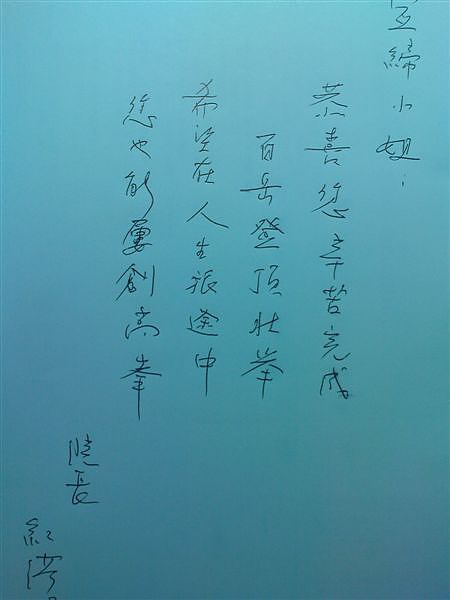 締小姐：
恭喜您辛苦完成
百岳登頂壯舉
希望在人生旅途中
您也能屢創高峯
院長